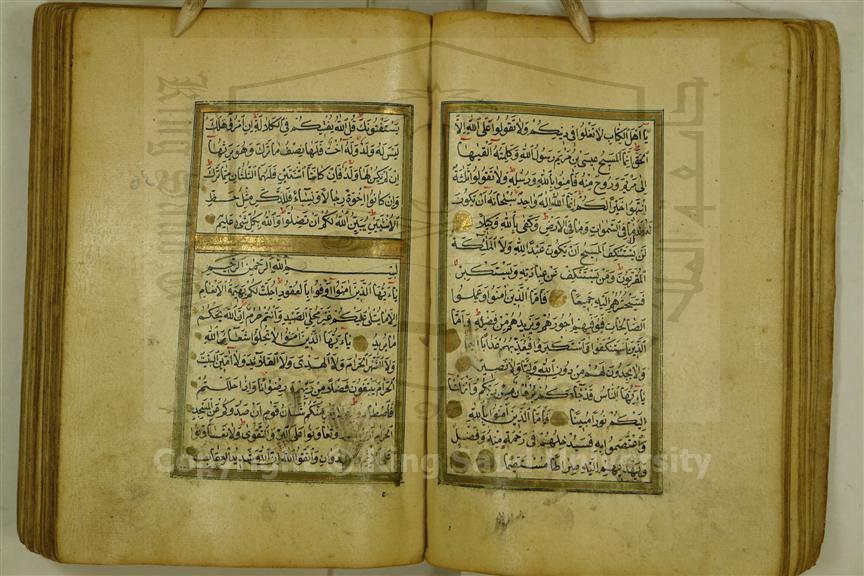 يا اهل الكتاب لا تغلوا في دينكم ولا تقولوا على الله الا
الحق انما المسيح عيسى بن مريم رسول الله وكلمته القيها
الى مريم وروح منه فامنوا بالله ورسله ولا تقولوا ثلثة
انتهوا خيرا لكم انما الله اله واحد سبحانه ان يكون
له ما في السموات وما في الارض وكفى بالله وكيلا
لن يستنكف المسيح ان يكون عبدا لله ولا الملئكة
المقربون ومن يستنكف عن عبادته ويستكبر
فسيحشرهم اليه جميعا فاما الذين امنوا وعملوا
الصالحات فيوفيهم اجورهم ويزيدهم من فضله واما
الذين استنكفوا واستكبروا فيعذبهم عذابا اليما
ولا يجدون لهم من دون الله وليا ولا نصيرا
يا ايها الناس قد جاءكم برهان من ربكم وانزلنا
اليكم نورا مبينا فاما الذين امنوا بالله
واعتصموا به فسيدخلهم في رحمة منه وفضل
ويهديهم اليه صراطا مستقيما
يستفتونك قل الله يفتيكم في الكلالة ان امرؤ هلك
ليس له ولد وله اخت فلها نصف ما ترك وهو يرثها
ان لم يكن لها ولد فان كانتا اثنتين فلهما الثلثان مما ترك
وان كانوا اخوة رجالا ونساء فللذكر مثل حظ
الانثيين يبين الله لكم ان تضلوا والله بكل شئ عليم
بسم الله الرحمن الرحيم
يا ايها الذين امنوا اوفوا بالعقود احلت لكم بهيمة الانعام
الا ما يتلى عليكم غير محلي الصيد وانتم حرم ان الله يحكم
ما يريد يا ايها الذين امنوا لا تحلوا شعائر الله
ولا الشهر الحرام ولا الهدى ولا القلائد ولا امين البيت
الحرام يبتغون فضلا من ربهم ورضوانا واذا حللتم
فاصطادوا ولا يجرمنكم شنان قوم ان صدوكم عن المسجد
الحرام وتعاونوا على البر والتقوى ولا تعاونوا
على واتقوا الله ان الله شديد العقاب
Copyright © King Saud University
جامعة الملك
King Saud